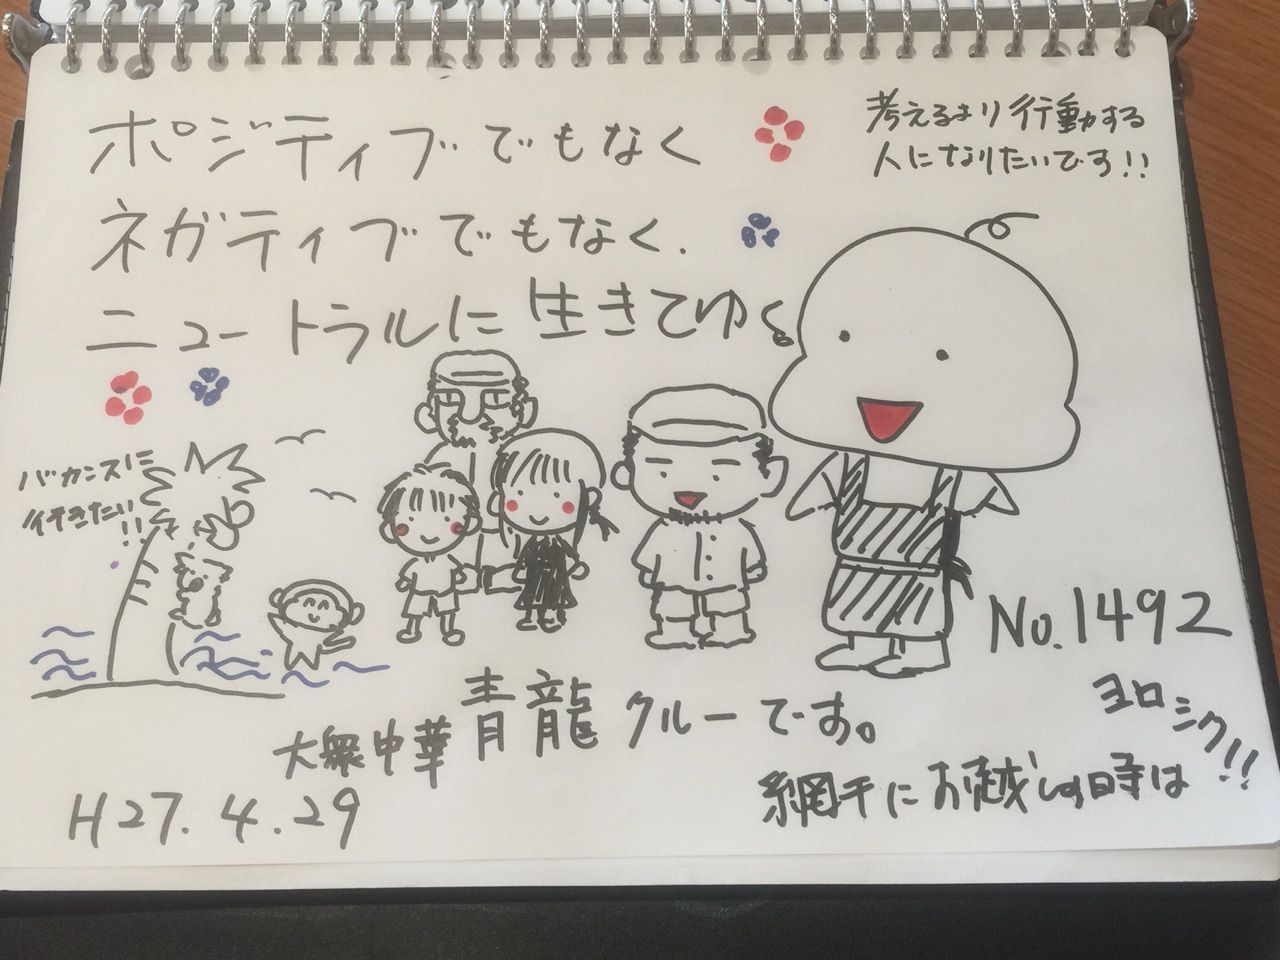 ポジティブでもなく
ネガティブでもなく.
ニュートラルに生きてゆく
考えるより行動する
人になりたいです!!
バカンスに
行きたい!!
No.1492
大衆中華青龍クルーです。
ヨロシク!!
網干にお越しの時は
H27.4.29